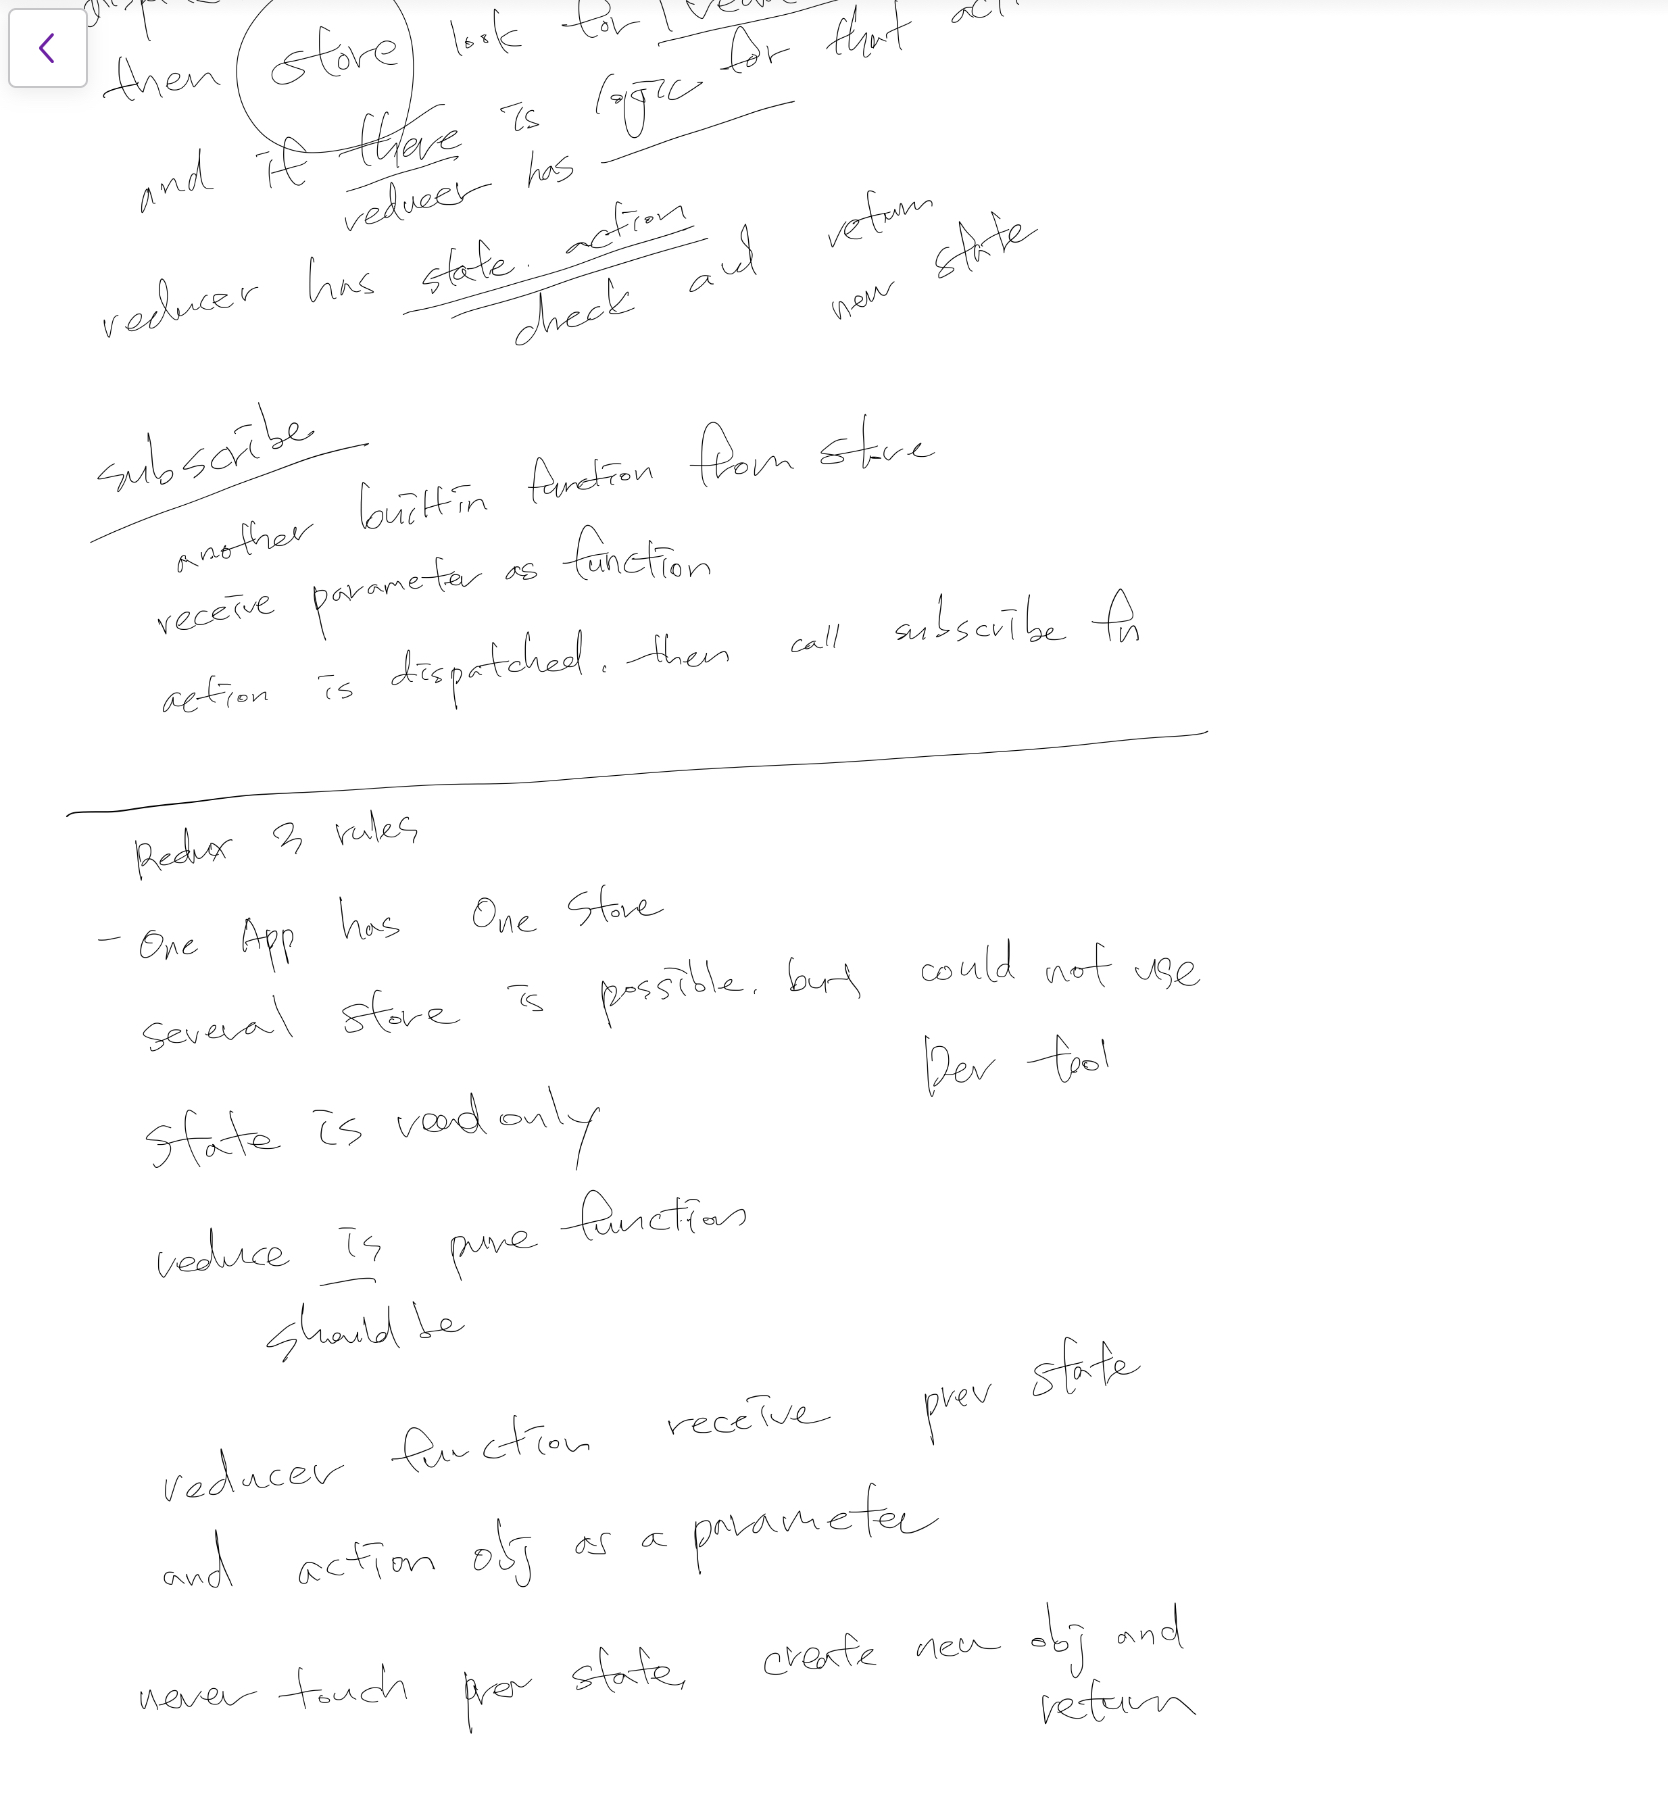 then store look for
and if there is logic for that
reducer has
reducer has state. action
check and return
new state
subscribe
another builtin function from store
receive parameter as function
action is dispatched. then call subscribe fn
Redux 3 rules
- One App has One Store
several store is possible. but could not use
Dev tool
state is read only
reduce is pure function
should be
reducer function receive prev state
and action obj as a parameter
never touch prev state, create new obj and
return